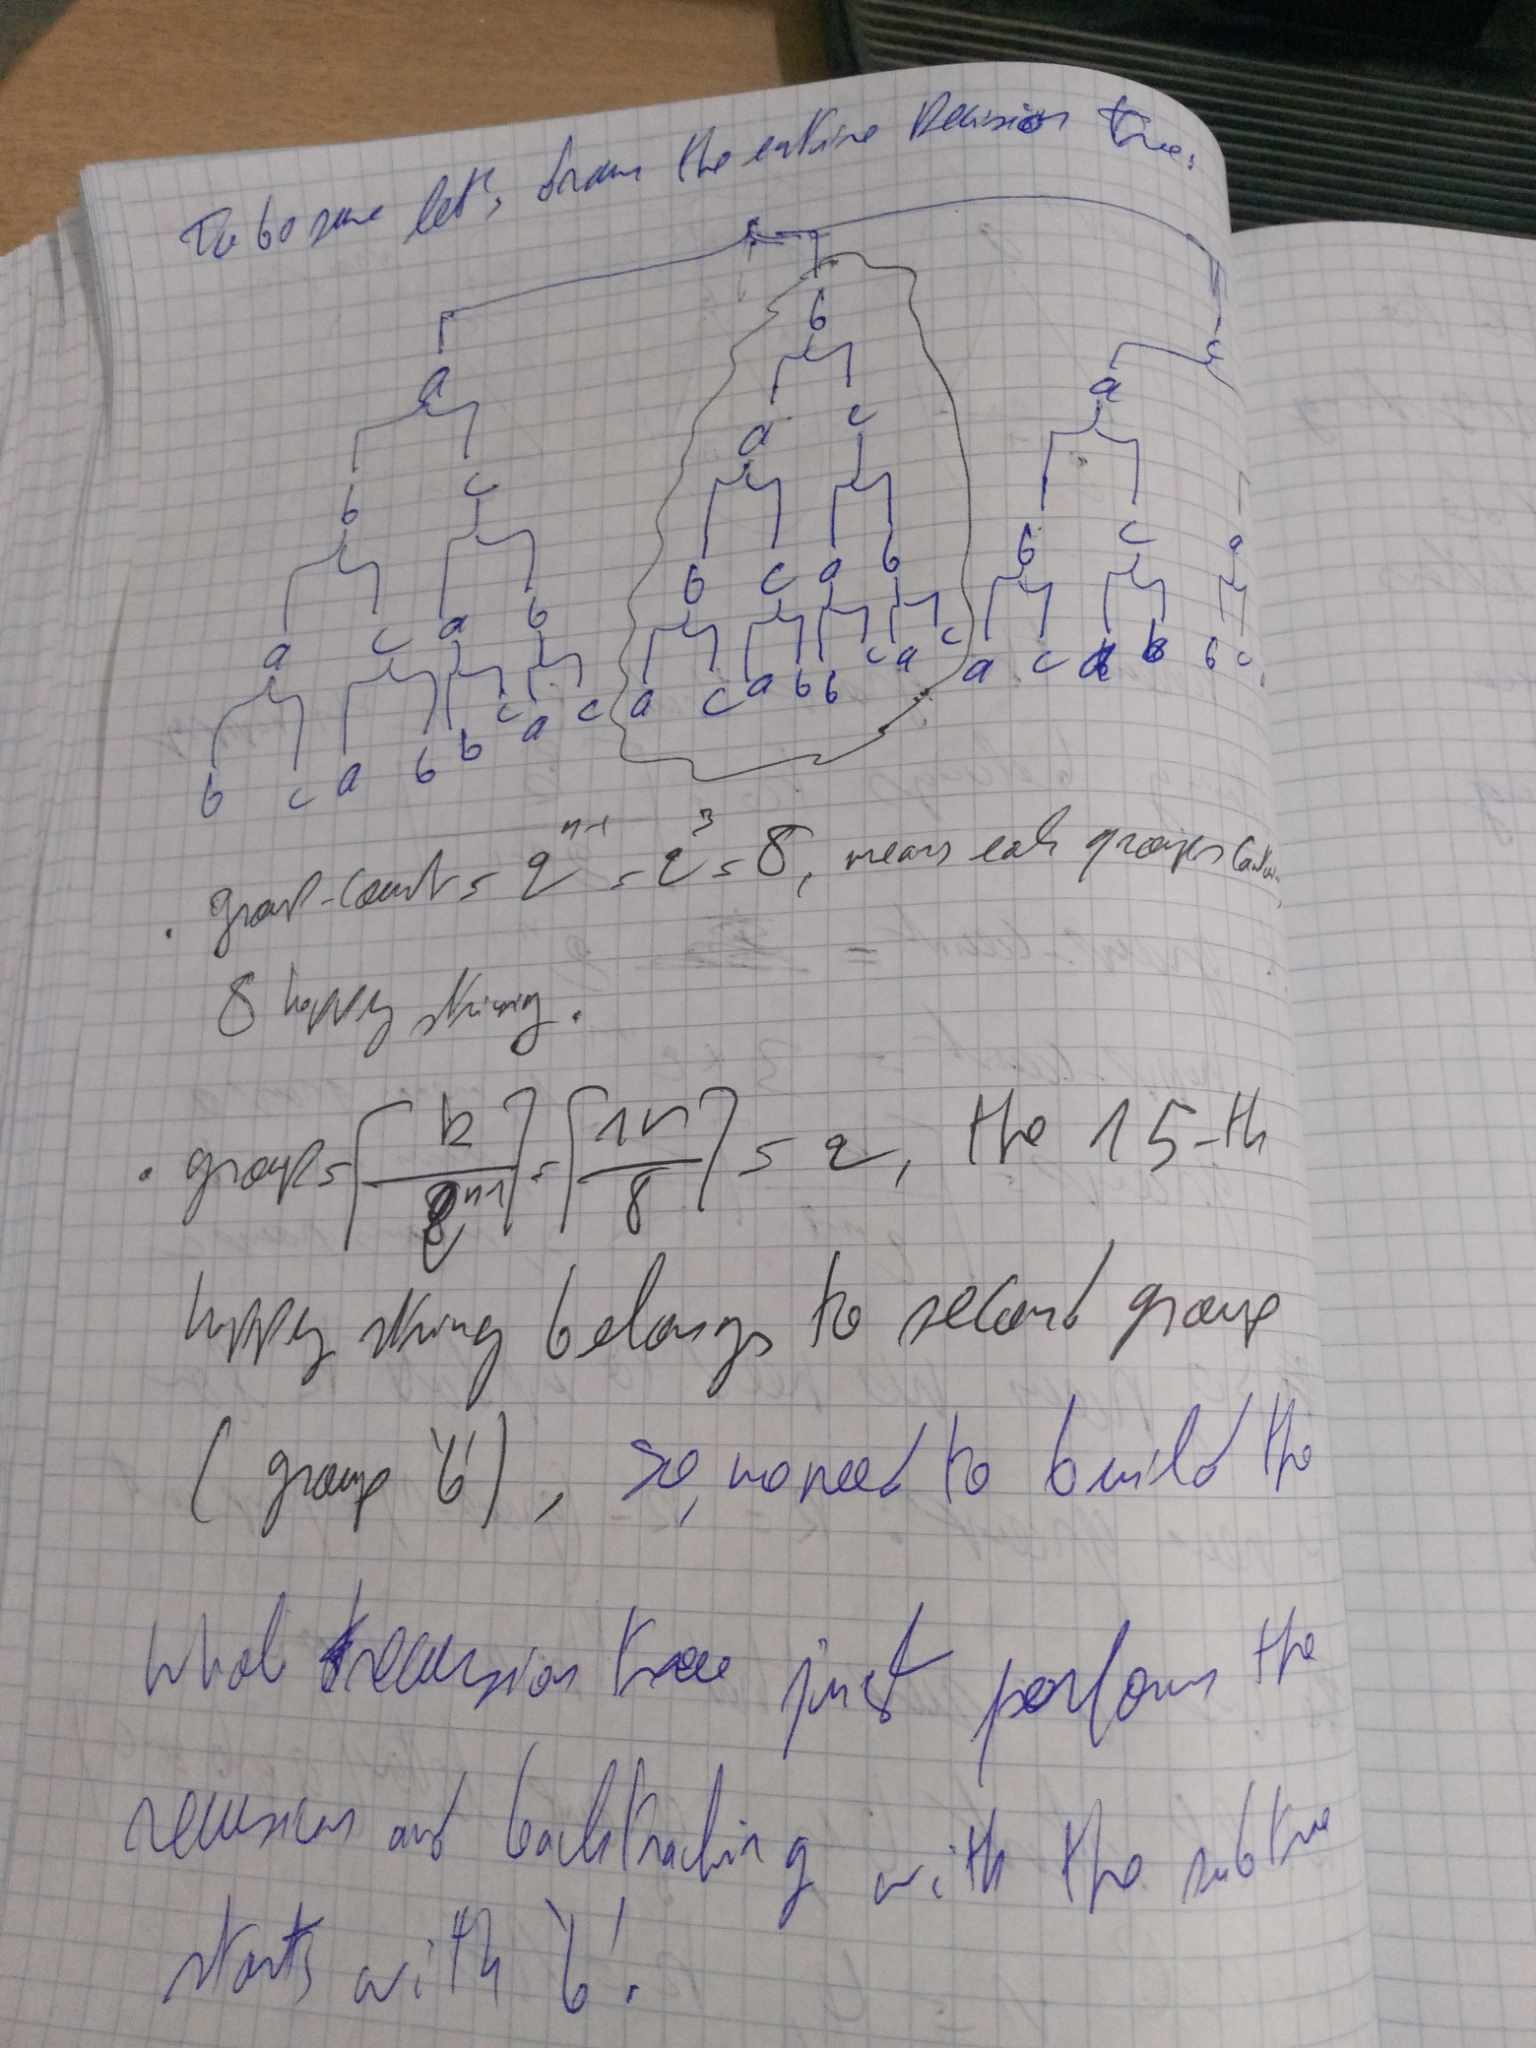 To be sure let's, draw the entire Decision tree,
b
c
a
a
a
c
b
c
b
c
a
b
c
a
b
a
c
a
b
a
c
a
b
b
c
a
c
b
c
a
b
b
c
a
c
a
c
a
b
b
c
a
c
a
b
b
c
. group-count = 2^{n-1} = 2^3 = 8, means each groups
8 happy string.
. group = ⌈k / 2^{n-1}⌉ = ⌈15 / 8⌉ = 2, the 15-th
happy string belongs to second group
(group 'b'), so, no need to build the
whole recursion tree just perform the
recursion and backtracking with the subtree
starts with 'b'.